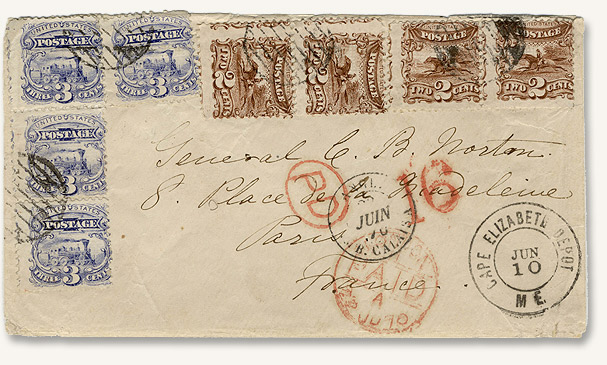 UNITED STATES POSTAGE THREE 3 CENTS
UNITED STATES POSTAGE THREE 3 CENTS
POSTAGE TWO 2 CENTS
POSTAGE TWO 2 CENTS
POSTAGE TWO 2 CENTS
POSTAGE TWO 2 CENTS
UNITED STATES POSTAGE THREE 3 CENTS
UNITED STATES POSTAGE THREE 3 CENTS
General C. B. Norton.
8. Place de la Madeleine
Paris
France.
PD
JUIN
70
CALAIS
10
PAID
4
JU 70
CAPE ELIZABETH DEPOT
JUN
10
ME.